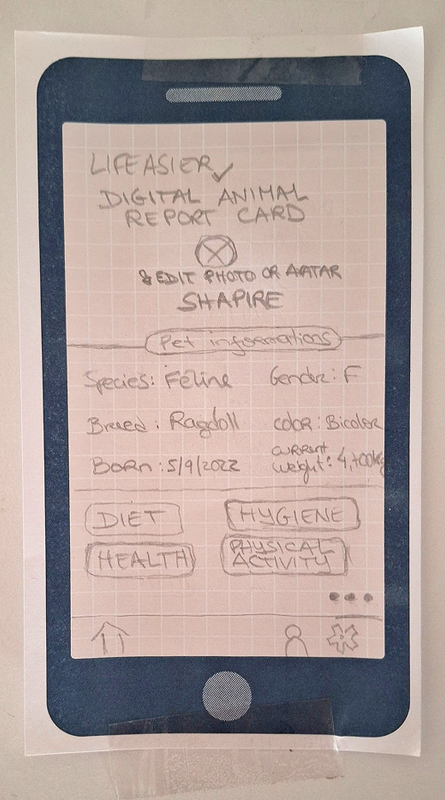 LIFEASIER
DIGITAL ANIMAL
REPORT CARD
EDIT PHOTO OR AVATAR
SHAPIRE
Pet informations
Species: Feline Gender: F
Breed: Ragdoll color: Bicolor
Born: 5/9/2022 current weight:
DIET HYGIENE
HEALTH PHYSICAL
ACTIVITY